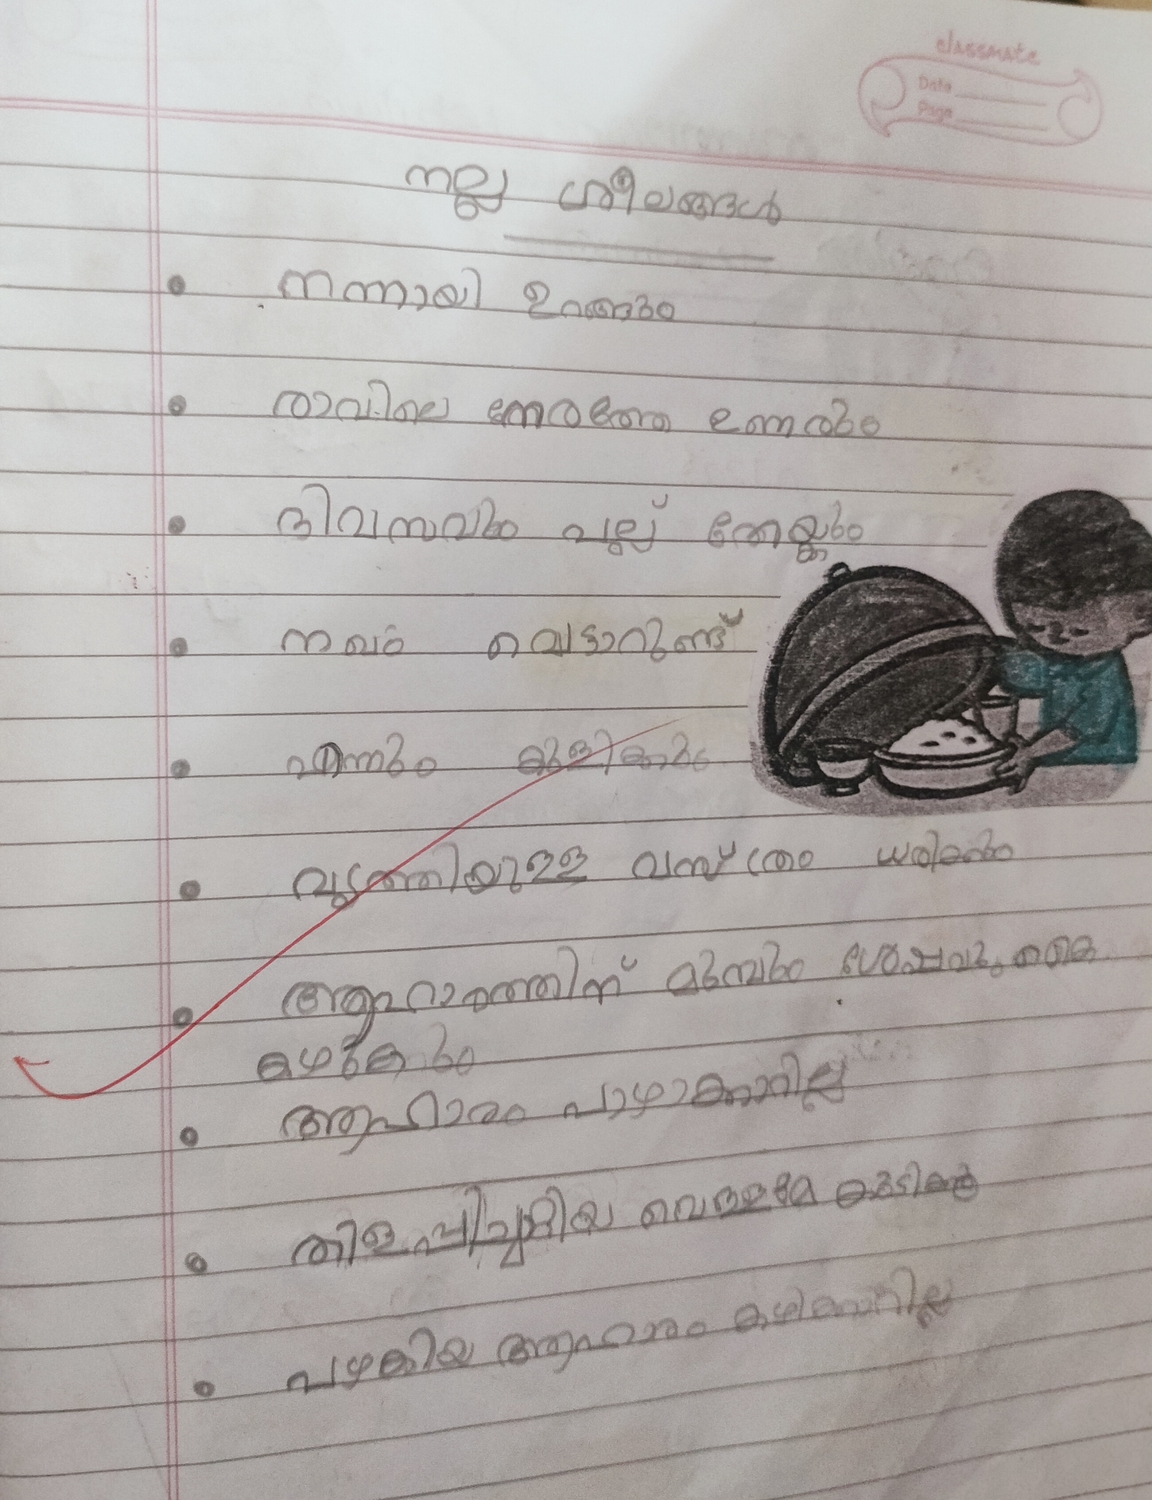 classmate
Date
Page
നല്ല ശീലങ്ങൾ
നന്നായി ഉറങ്ങും
രാവിലെ നേരത്തെ ഉണരും
ദിവസവും പല്ല് തേയ്ക്കും
നഖം വെട്ടാറുണ്ട്
എന്നും കുളിക്കും
വൃത്തിയുള്ള വസ്ത്രം ധരിക്കും
ആഹാരത്തിന് മുമ്പും ശേഷവും കൈ
കഴുകും
ആഹാരം പാഴാക്കാറില്ല
തിളപ്പിച്ചാറിയ വെള്ളമേ കുടിക്കൂ
പഴകിയ ആഹാരം കഴിക്കാറില്ല